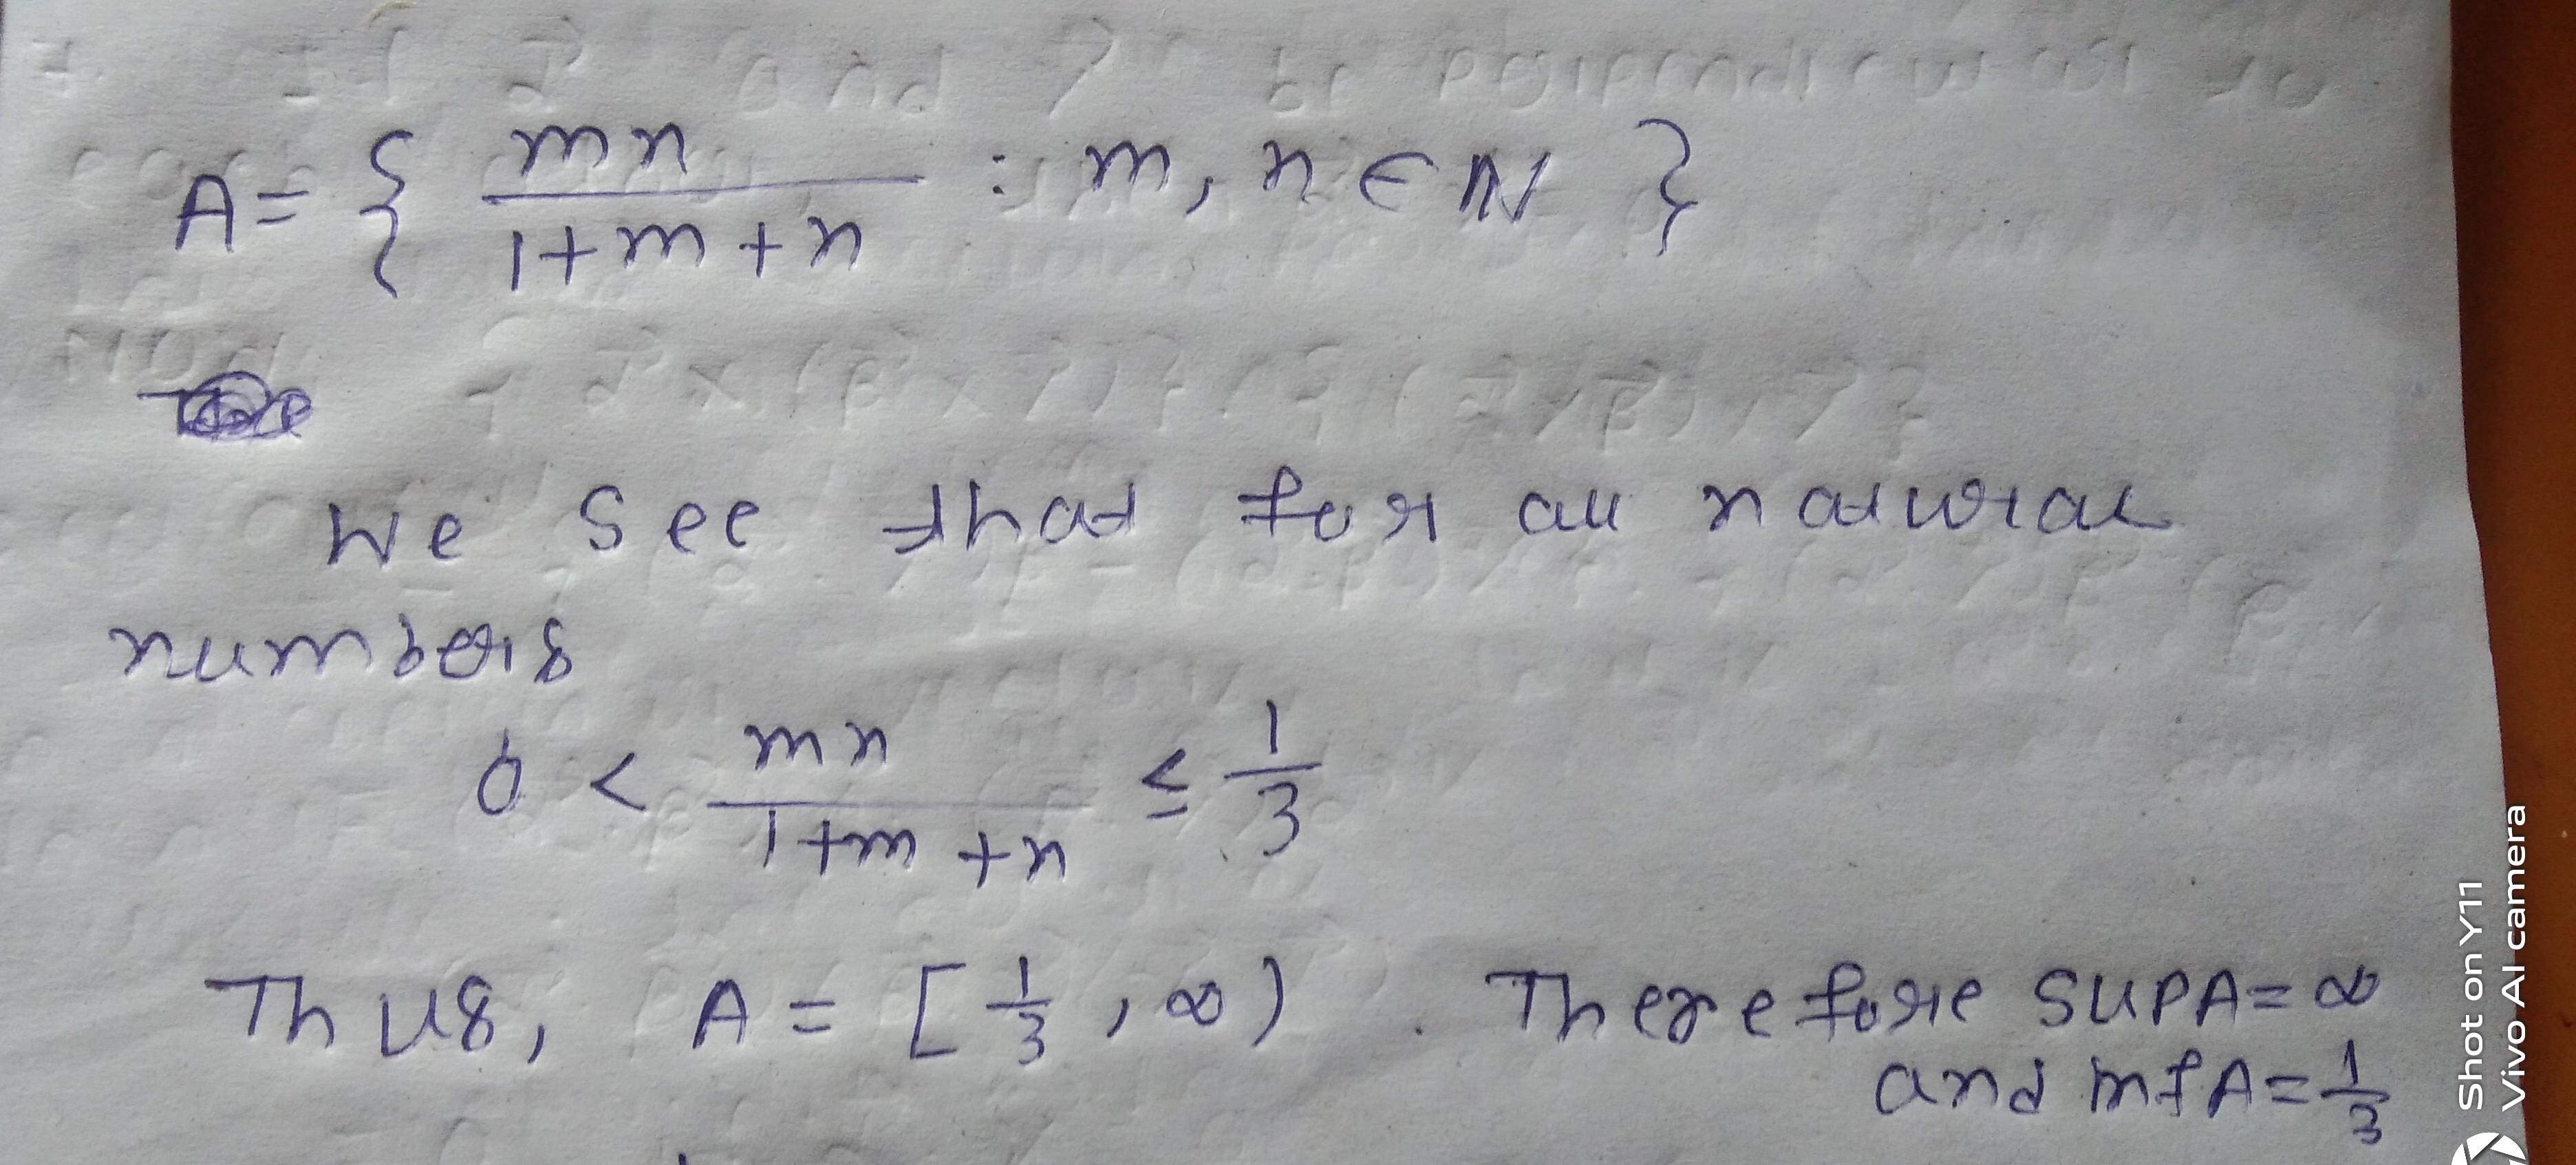 A = { mn / 1+m+n : m, n ∈ N }
We see that for all natural
numbers
0 < mn / 1+m+n ≤ 1/3
Thus, A = [1/3, ∞) . Therefore SUPA = ∞
and infA = 1/3
Shot on Y11
Vivo AI camera